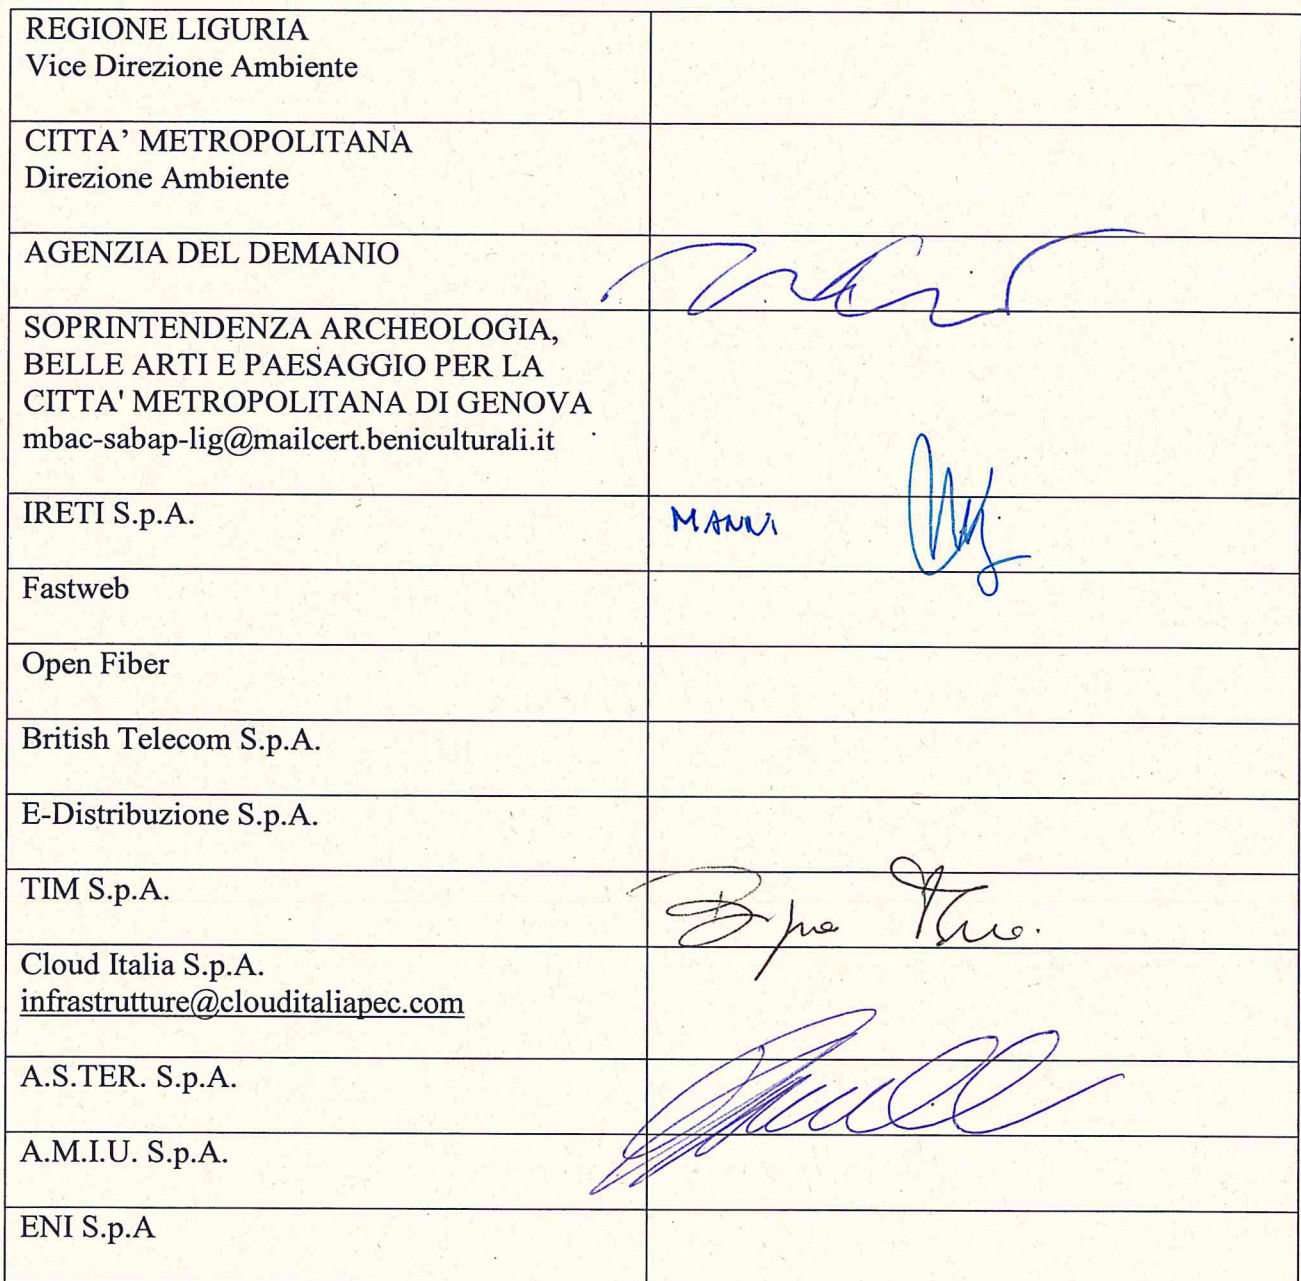 REGIONE LIGURIA
Vice Direzione Ambiente
CITTA’ METROPOLITANA
Direzione Ambiente
AGENZIA DEL DEMANIO
SOPRINTENDENZA ARCHEOLOGIA,
BELLE ARTI E PAESAGGIO PER LA
CITTA' METROPOLITANA DI GENOVA
mbac-sabap-lig@mailcert.beniculturali.it
IRETI S.p.A. MANNI
Fastweb
Open Fiber
British Telecom S.p.A.
E-Distribuzione S.p.A.
TIM S.p.A.
Cloud Italia S.p.A.
infrastrutture@clouditaliapec.com
A.S.TER. S.p.A.
A.M.I.U. S.p.A.
ENI S.p.A